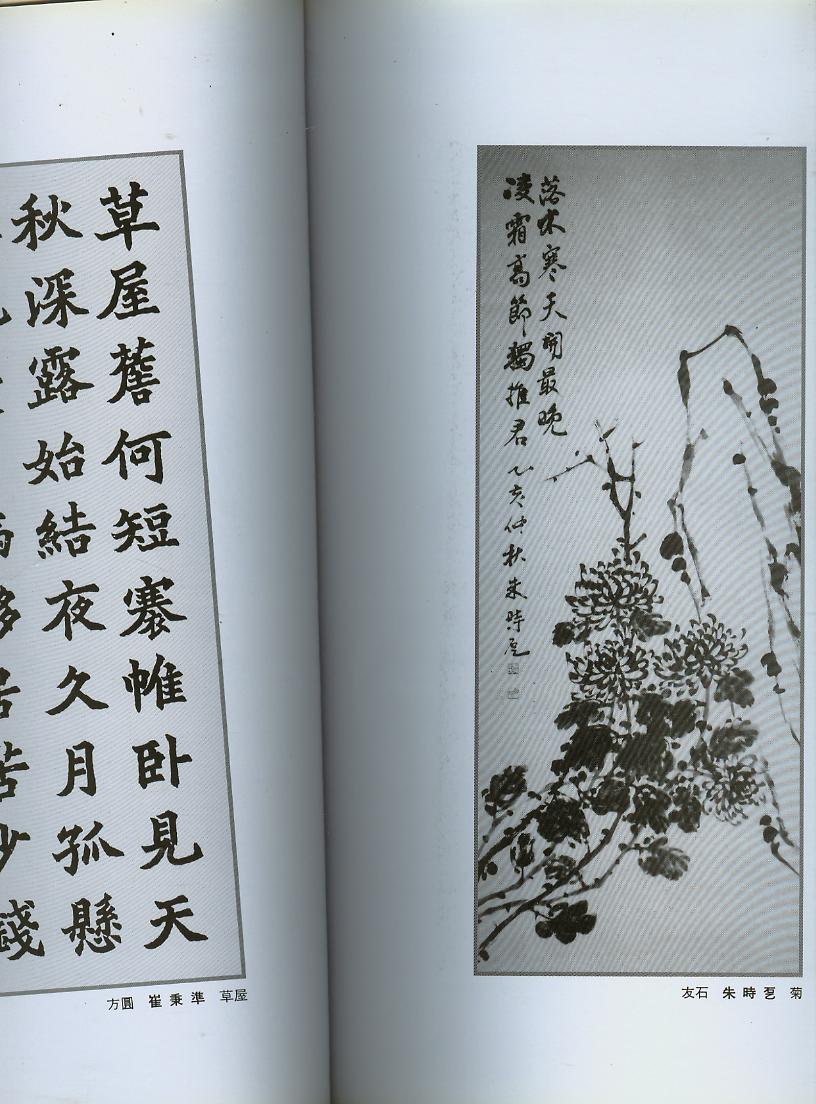 草屋薝何短褰帷卧見天
秋深露始結夜久月孤懸
方圓 崔秉準 草屋
落木寒天開最晚
凌霜高節獨推君 乙亥仲秋朱時
友石 朱時 菊